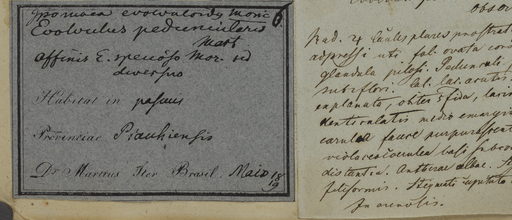 Ipomaea evolvuloides Moric
6
Evolvulus peduncularis
Mart
affinis E. specioso Mor. sed
diversus
Habitat in pascuis
Provinciae Piauhiensis
Dr Martius Iter Brasil. Maio 18
19
obs.
Rad. ♃ Caules plures prostrat
adpressi uti fol. ovata
glandula pilosi. Pedunculi
subriflori. Cal. lac. acutis
explanato, obiter 5fida, lacin
denticulatis medio emargin
caerulea fauce purpurascent
violaceocaerulea basi
distantia. Antherae albae. St
filiformis. Stigmate capitato
In arenosis.